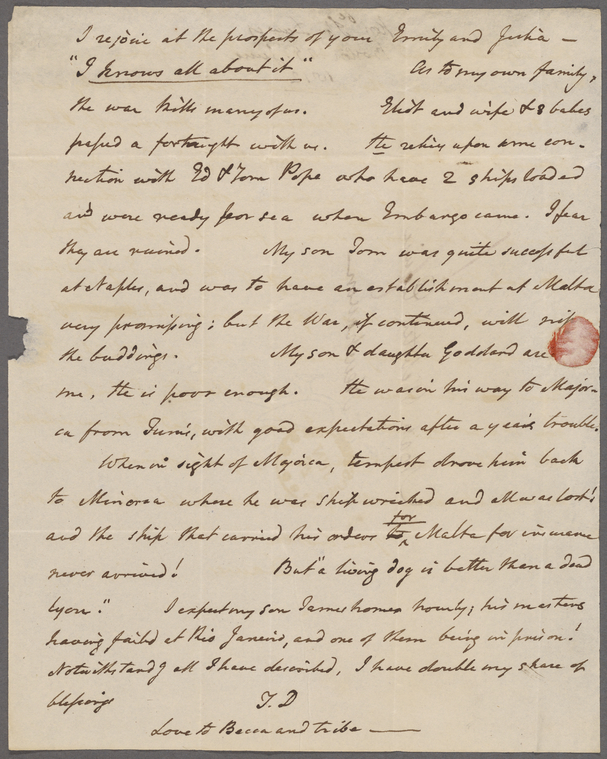 I rejoice at the prospects of your Emily and Julia —
"I knows all about it" As to my own family,
the war kills many of us. Eliot and wife & 8 babes
passed a fortnight with us. He relies upon some con-
nection with Ed & Tom Pope who have 2 ships loaded
and were ready for sea when Embargo came. I fear
they are ruined. My son Tom was quite successful
at Naples, and was to have an establishment at Malta
very promissing; but the War, if continued, will nip
the buddings. My son & daughter Goddard are
me, He is poor enough. He was in his way to Major-
ca from Tunis, with good expectations after a years trouble.
When in sight of Majorca, tempest drove him back
to Minorca where he was shipwrecked and all was lost!
and the ship that carried his orders to for Malta for insurance
never arrived! But "a living dog is better than a dead
lyon." I expect my son James home hourly; his masters
having faild at Rio Janeiro, and one of them being in prison!
Notwithstandg all I have described, I have double my share of
blessings T. D
Love to Becca and tribe —